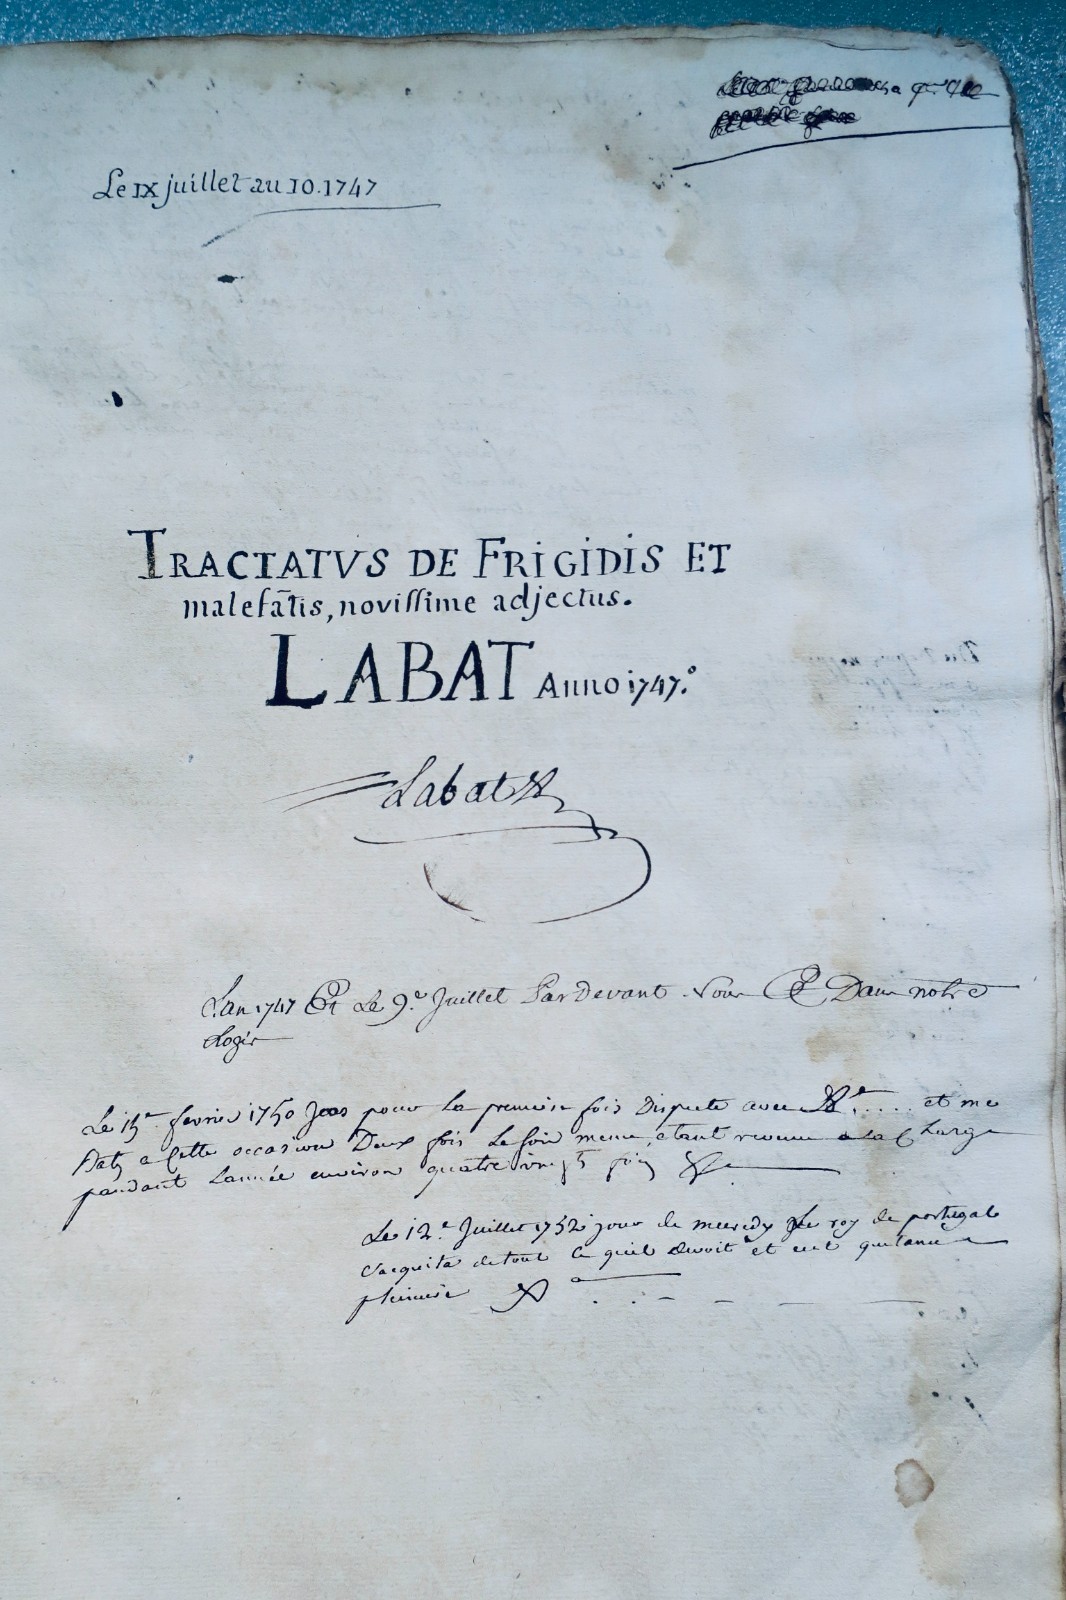 Le IX juillet au 10. 1747
TRACTATVS DE FRIGIDIS ET
malefatis, novissime adjectus.
LABAT Anno 1747.
Labat
L'an 1747 Et Le 9.e Juillet Pardevant Nous Dans notre
Logis
Le 15e fevrier 1750 Jeas pour La premiere fois Dispute avec et me
a Cette occasion Deux fois Le soir meme, etant revenu a La Charge
pandant Lannée environ quatre vingt fois
Le 12.e Juillet 1752 jour de mecredy Le roy de portugal
sacquita de tout Ce quil devoit et eut quitance
pleniere